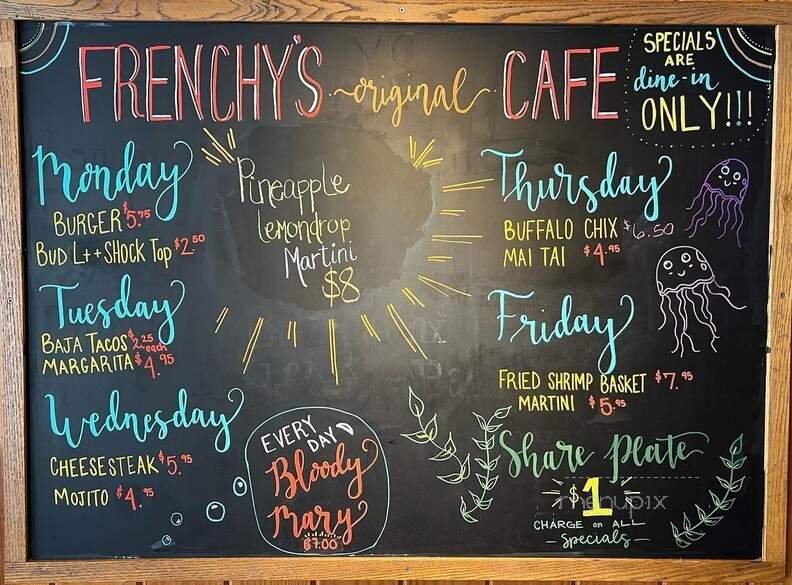 FRENCHY'S original CAFE
SPECIALS
ARE
dine-in
ONLY!!!
Monday
BURGER $5.75
BUD LT + SHOCK TOP $2.50
Tuesday
BAJA TACOS $2.25 each
MARGARITA $4.95
Wednesday
CHEESESTEAK $5.95
MOJITO $4.95
Pineapple
Lemondrop
Martini
$8
EVERY
DAY
Bloody
Mary
$7.00
Thursday
BUFFALO CHIX $6.50
MAI TAI $4.95
Friday
FRIED SHRIMP BASKET $7.95
MARTINI $5.95
Share Plate
$1
menupix
CHARGE on ALL
specials